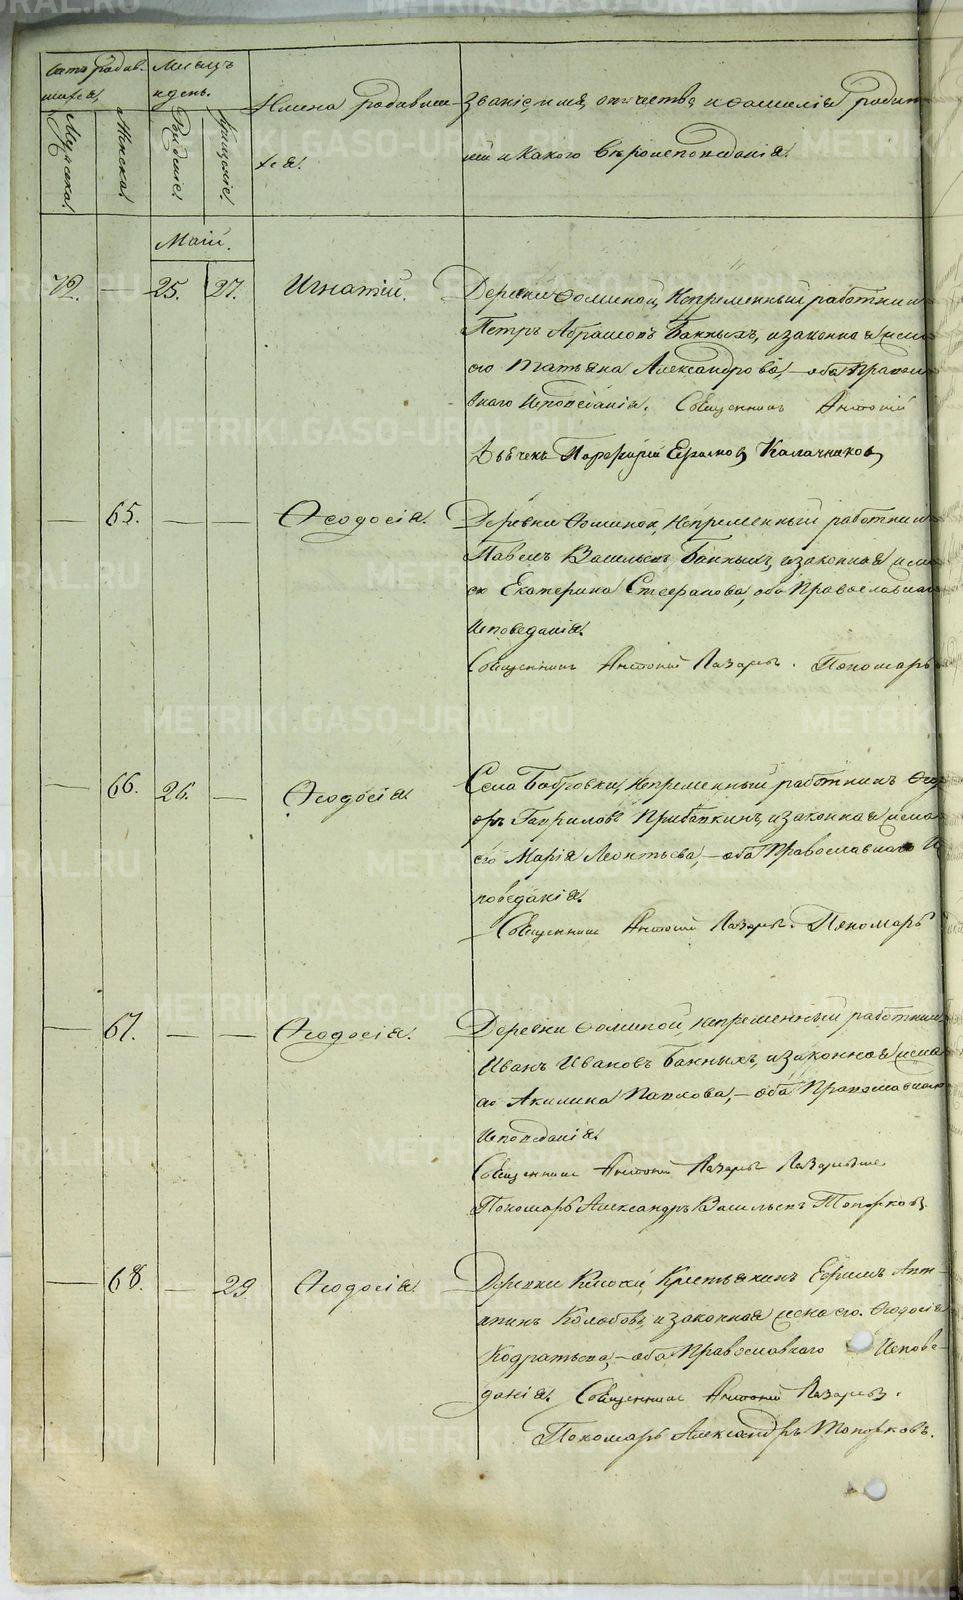 Счетъ родив-
шихся,
Мужеска.
Женска.
Месяцъ
и день.
Рожденiе.
Крещенiе.
Имена родивши-
хся.
Званiе, имя, отчество и фамилiя родит-
лей и какого вероисповеданiя.
Маiй.
72. — 25. 27. Игнатiй.
Деревни Фоминой, Непременный работникъ
Петръ Абрамовъ Банныхъ, и законная жена
его Татьяна Александрова, — оба Православ-
наго Исповеданiя. Священникъ Антонiй
Дьячекъ Порфирiй Калачниковъ
— 65. — — Феодосiя.
Деревни Фоминой, Непременный работникъ
Павелъ Васильевъ Банныхъ, и законная жена
его Екатерина Стефанова, оба Православнаго
Исповеданiя.
Священникъ Антонiй Лазаревъ. Пономарь
— 66. 26. — Феодосiя.
Села Бобровки, Непременный работникъ Фео-
оръ Гавриловъ и законная жена
его Марiя Леонтьева, — оба Православнаго Ис
поведанiя.
Священникъ Антонiй Лазаревъ. Пономарь
— 67. — — Феодосiя.
Деревни Фоминой, Непременный работникъ
Иванъ Ивановъ Банныхъ, и законная жена
его Акилина Павлова, — оба Православнаго
Исповеданiя.
Священникъ Антонiй Лазаревъ
Пономарь Александръ Васильевъ Топорковъ
— 68. — 29 Феодосiя.
Деревни Ключей, Крестьянинъ Ефимъ Ант-
Колобовъ, и законная жена его Феодосiя
Кодратьева, — оба Православнаго Испове-
данiя. Священникъ Антонiй Лазаревъ.
Пономарь Александръ Топорковъ.
METRIKI.GASO-URAL.RU